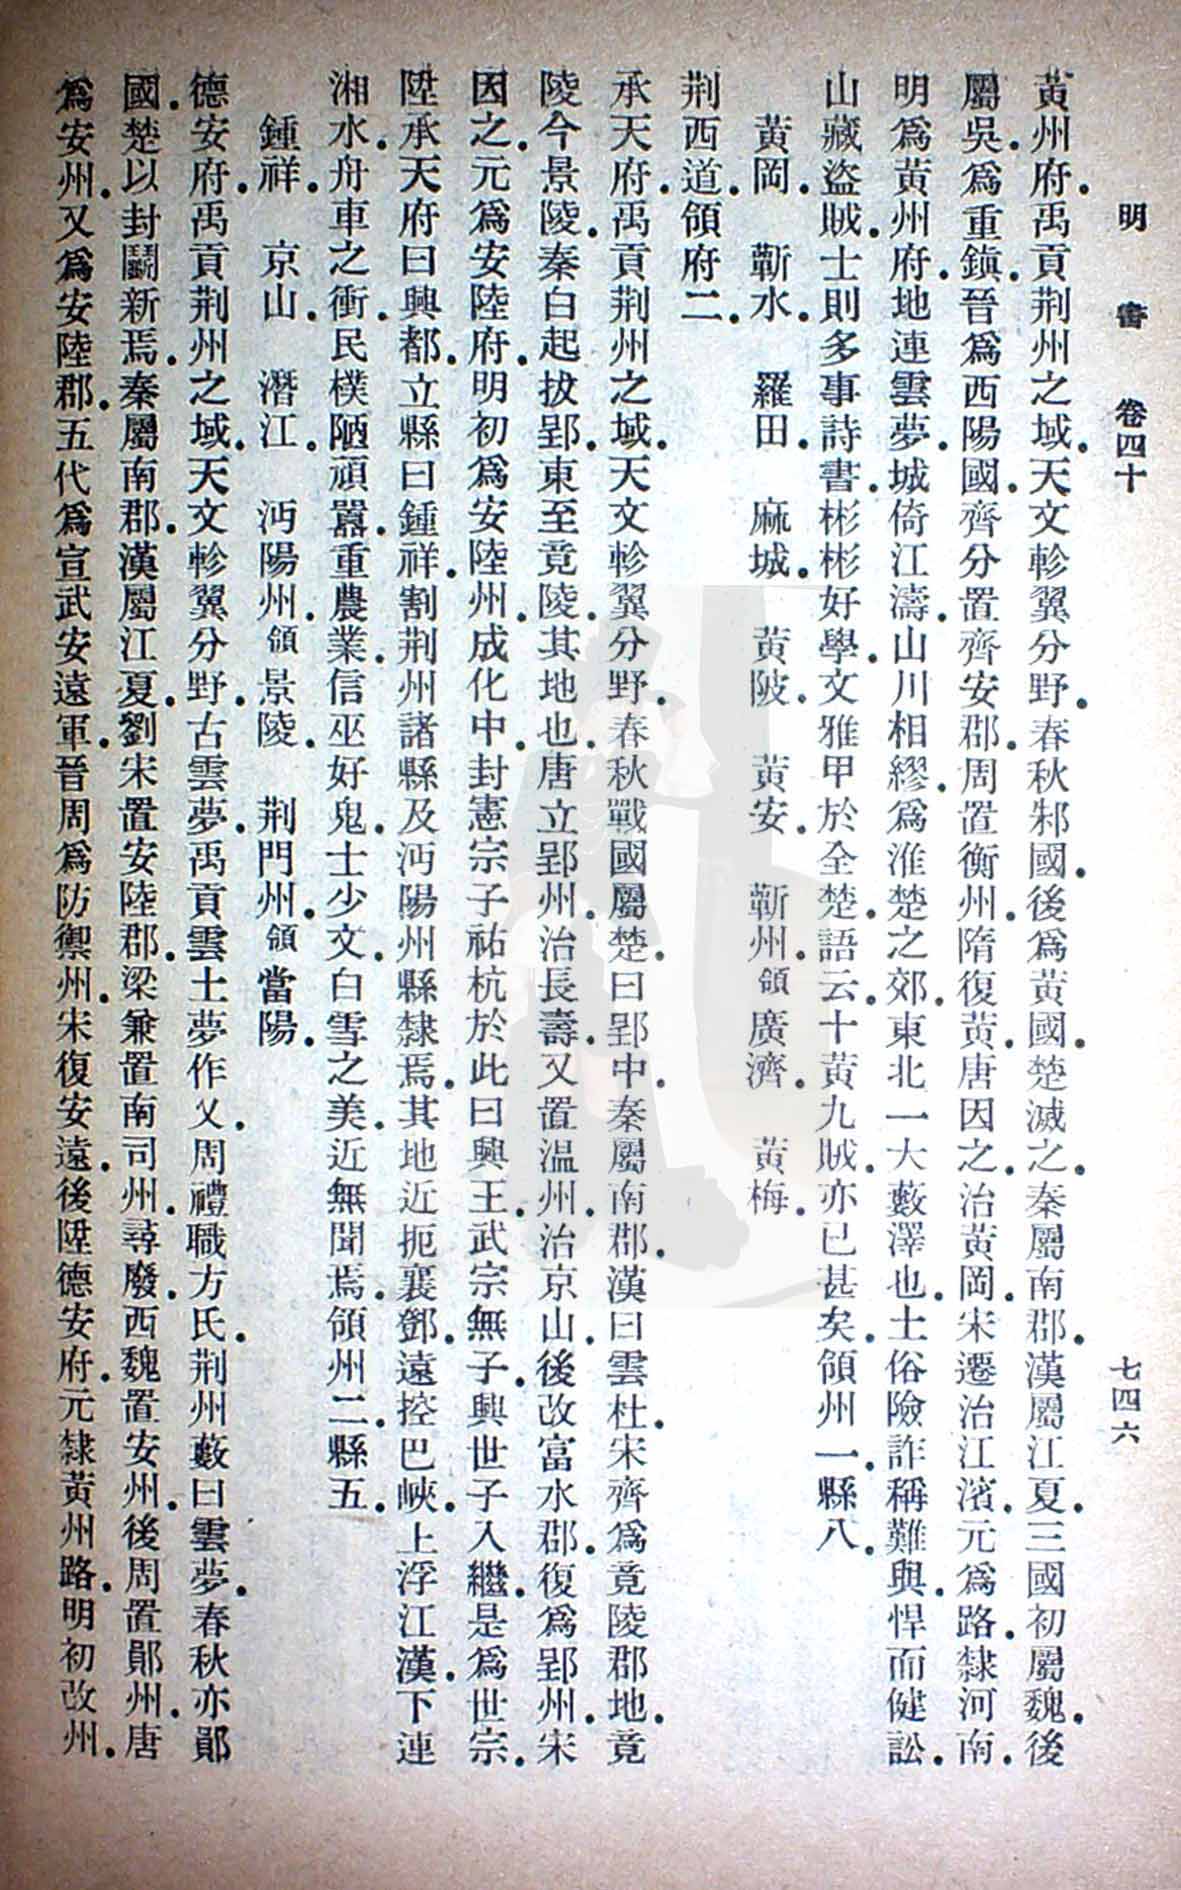 明書 卷四十 七四六
黃州府．禹貢荆州之域．天文軫翼分野．春秋邾國．後爲黃國．楚滅之．秦屬南郡．漢屬江夏．三國初屬魏．後
屬吳．爲重鎭．晉爲西陽國．齊分置齊安郡．周置衡州．隋復黃．唐因之．治黃岡．宋遷治江濱．元爲路．隸河南．
明爲黃州府．地連雲夢．城倚江濤．山川相繆．爲淮楚之郊．東北一大藪澤也．士俗險詐．稱難與．悍而健訟．
山藏盜賊．士則多事詩書．彬彬好學．文雅甲於全楚．語云．十黃九賊．亦已甚矣．領州一．縣八．
黃岡． 蘄水． 羅田． 麻城． 黃陂． 黃安． 蘄州．領廣濟． 黃梅．
荆西道．領府二．
承天府．禹貢荆州之域．天文軫翼分野．春秋戰國屬楚．曰郢中．秦屬南郡．漢曰雲杜．宋齊爲竟陵郡地．竟
陵今景陵．秦白起拔郢．東至竟陵．其地也．唐立郢州．治長壽．又置温州．治京山．後改富水郡．復爲郢州．宋
因之．元爲安陸府．明初爲安陸州．成化中．封憲宗子祐杭於此．曰興王．武宗無子．興世子入繼．是爲世宗．
陞承天府曰興都．立縣曰鍾祥．割荆州諸縣及沔陽州縣隸焉．其地近扼襄鄧．遠控巴峽．上浮江漢．下連
湘水．舟車之衝．民樸陋頑嚚．重農業．信巫好鬼．士少文．白雪之美．近無聞焉．領州二．縣五．
鍾祥． 京山． 潛江． 沔陽州．領景陵． 荆門州．領當陽．
德安府．禹貢荆州之域．天文軫翼分野．古雲夢．禹貢雲土夢作乂．周禮職方氏．荆州藪曰雲夢．春秋亦鄖
國．楚以封鬬新焉．秦屬南郡．漢屬江夏．劉宋置安陸郡．梁兼置南司州．尋廢．西魏置安州．後周置鄖州．唐
爲安州．又爲安陸郡．五代爲宣武安遠軍．晉周爲防禦州．宋復安遠．後陞德安府．元隸黃州路．明初改州．